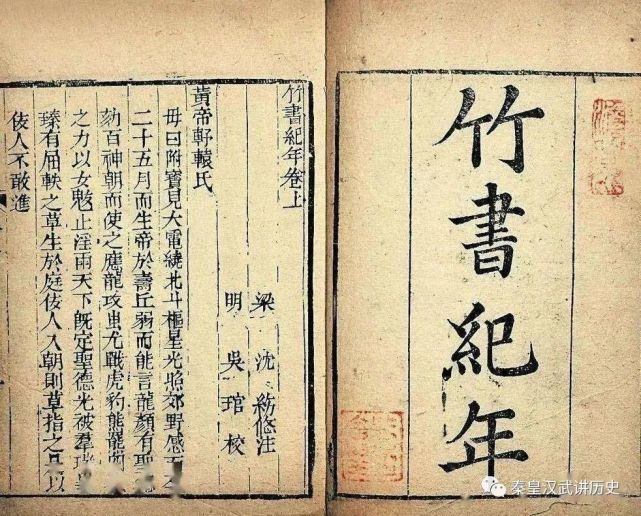 竹書紀年
竹書紀年卷上
梁 沈約附注
明 吳琯校
黃帝軒轅氏
母曰附寶見大電繞北斗樞星光照郊野感而
二十五月而生帝於壽丘弱而能言龍顏有聖
劾百神朝而使之應龍攻蚩尤戰虎豹熊羆四
之力以女魃止淫雨天下既定聖德光被羣瑞畢
臻有屈軼之草生於庭佞人入朝則草指之是以
佞人不敢進
秦皇汉武讲历史